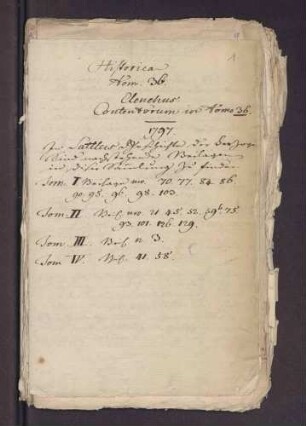 1
Historica
Tom. 36.
Elenchus
Contentorum in Tomo 36.
1797
In Sattlers Geschichte der Herzoge
sind nachstehende Beilagen
in dieser Sammlung zu finden
Tom. I Beilage nro. 70. 77. 84. 86
90. 95. 96. 98. 103.
Tom. II Beil. nro. 21. 45. 52. 75
93. 101. 126. 129.
Tom. III. Beil. n. 3.
Tom IV. Beil. 41. 58.